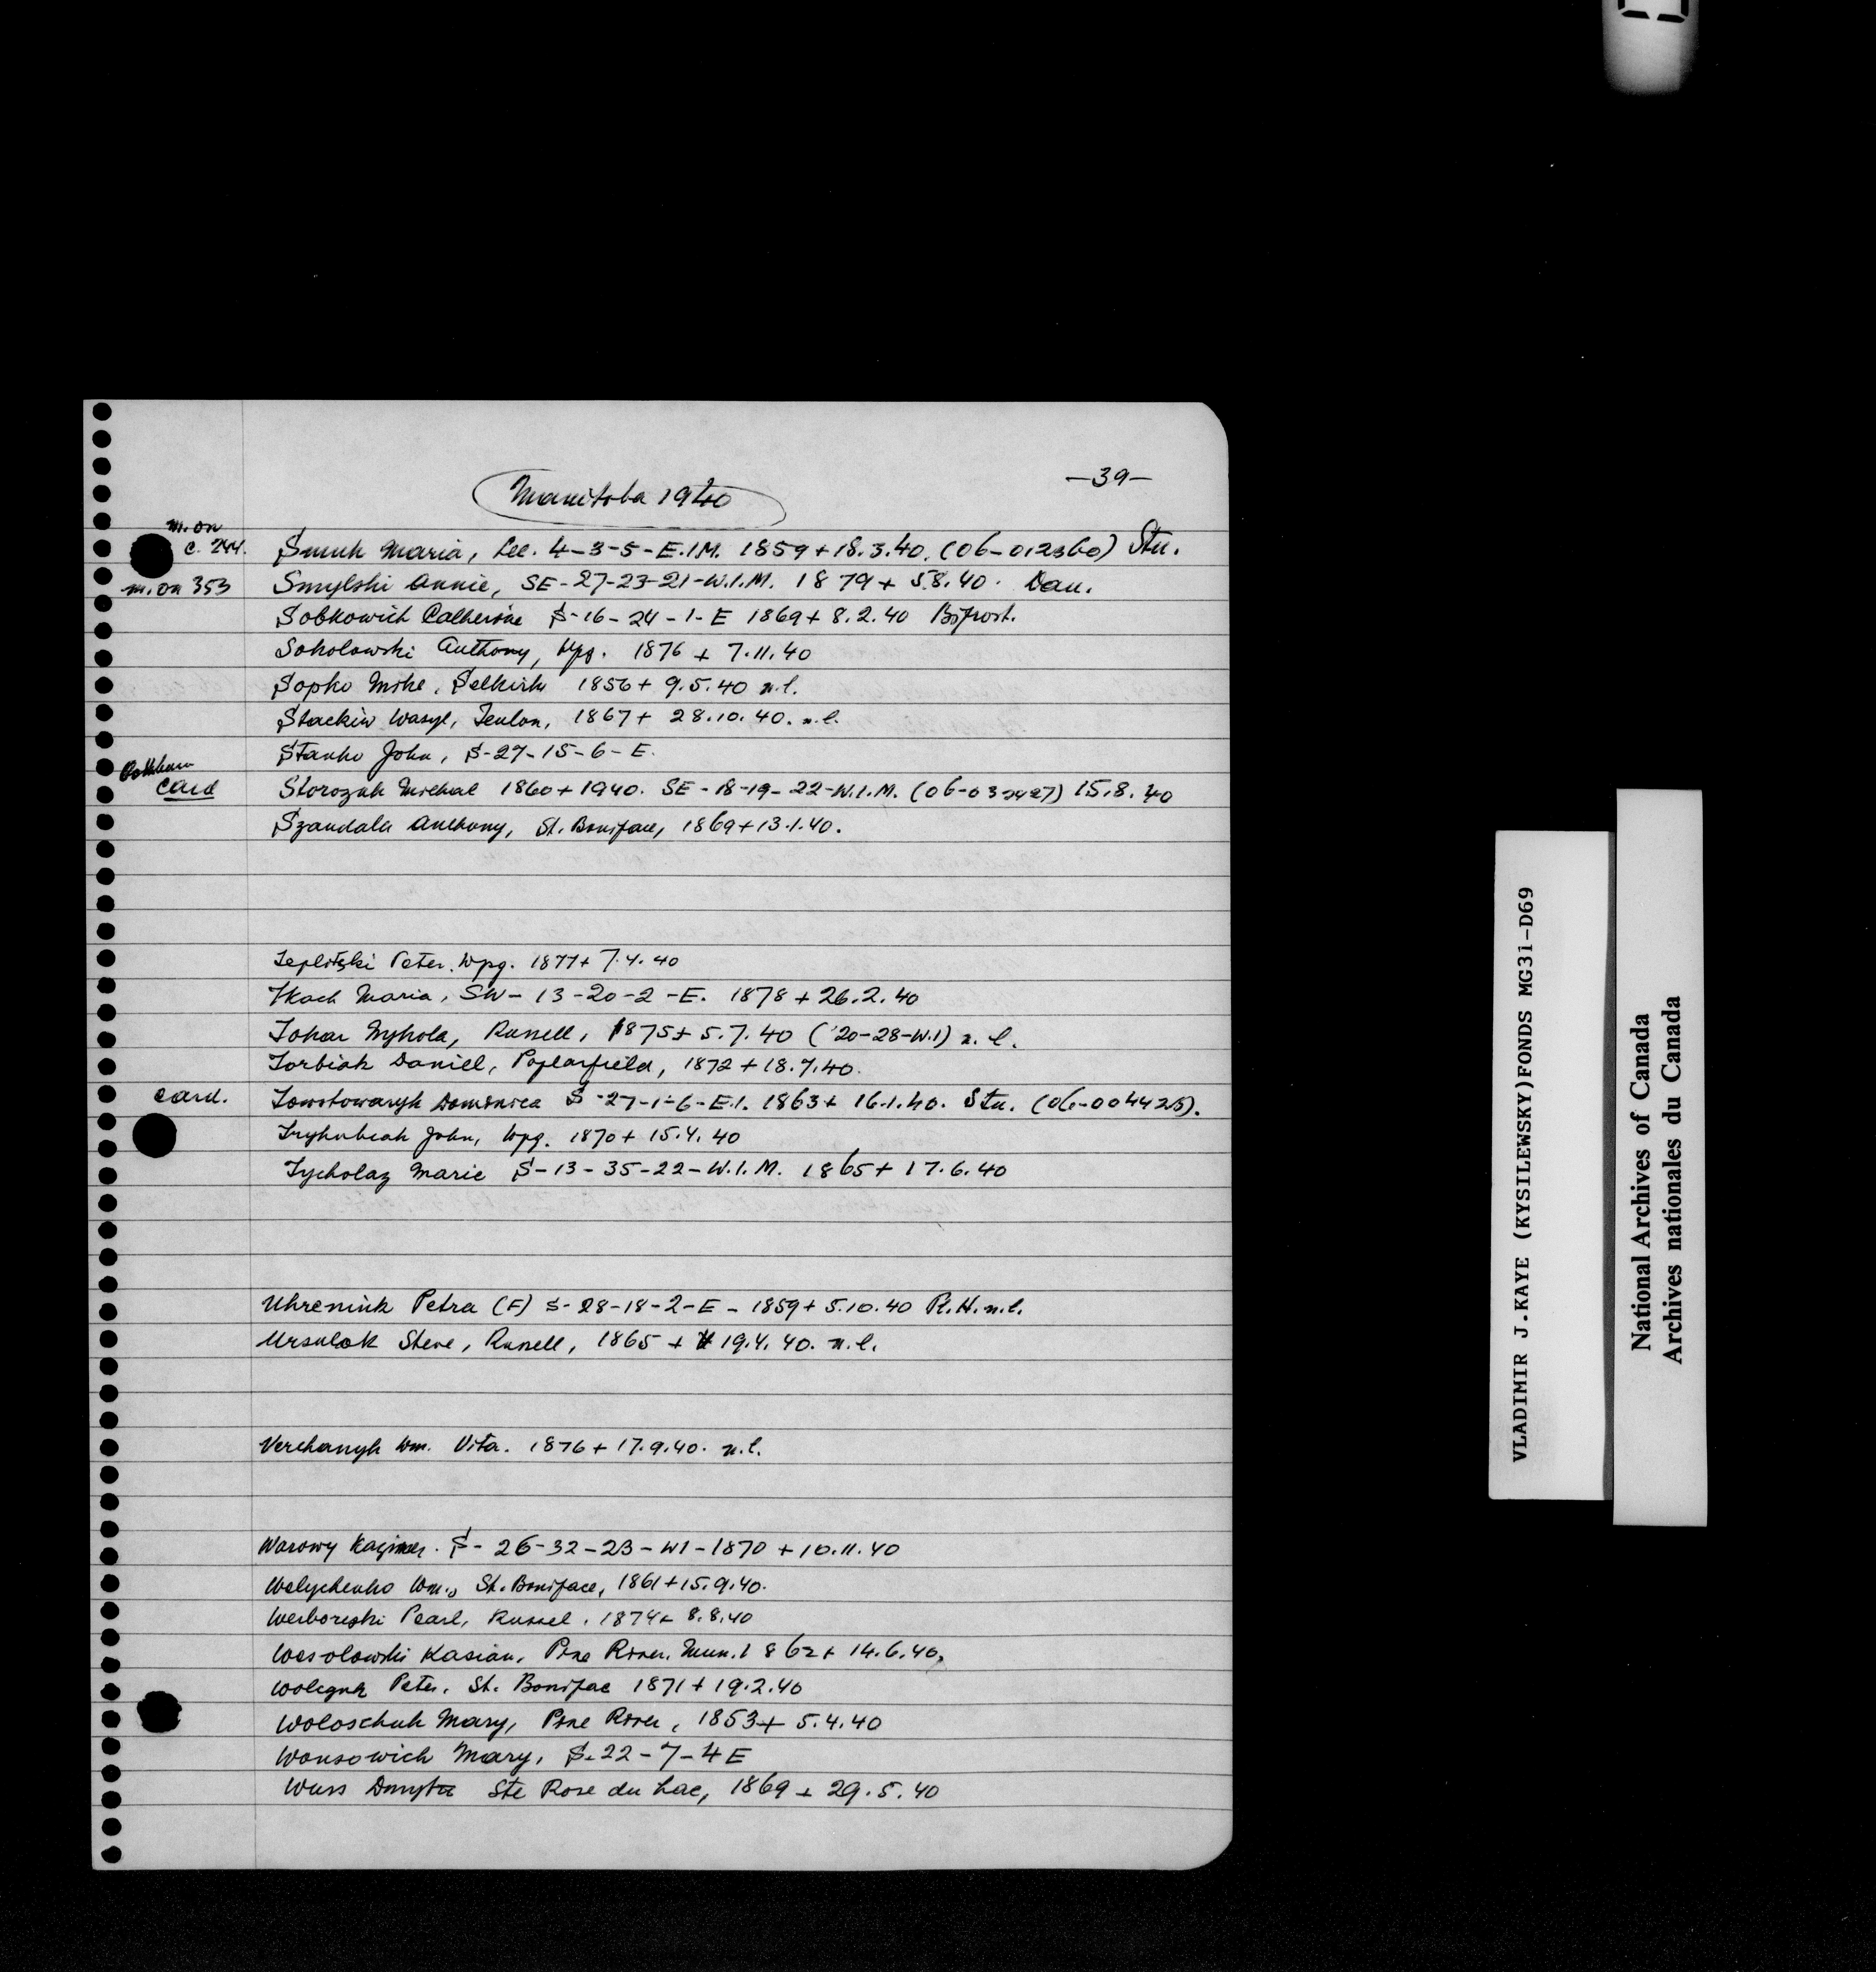 -39-
Manitoba 1940
m. on
c. 244. Smuk Maria, Sec. 4-3-5-E.1M. 1859+18.3.40. (06-012360) Stu.
m. on 353 Smylski Annie, SE-27-23-21-W.1.M. 1879+ 5.8.40. Dau.
Sobkowich Catherine S-16-24-1-E 1869+ 8.2.40 Bifrost.
Sokolowski Anthony, Wpg. 1876 + 7.11.40
Sopko Mike, Selkirk 1856+ 9.5.40 n.l.
Stackiw Wasyl, Teulon, 1867+ 28.10.40. n.l.
Stanko John, S-27-15-6-E.
card Storozuk Michal 1860+1940. SE-18-19-22-W.1.M. 15.8.40
Szandala Anthony, St. Boniface, 1869+13.1.40.
Teplitski Peter. Wpg. 1877+ 7.4.40
Tkach Maria, SW-13-20-2-E. 1878+26.2.40
Tokar Mykola, Russell, 1875+ 5.7.40 (20-28-W.1) n.l.
Torbiak Daniel, Poplarfield, 1872+18.7.40.
card. Towstowaryk Domenica S-27-1-6-E.1. 1863+ 16.1.40. Stu. (06-004425).
Tryhubiak John, Wpg. 1870+ 15.4.40
Tycholaz Marie S-13-35-22-W.1.M. 1865+ 17.6.40
Uhreniuk Petra (F) S-28-18-2-E-1859+ 5.10.40 R.H. n.l.
Ursulak Steve, Russell, 1865 + 19.4.40. n.l.
Verchanyk Wm. Vita. 1876+17.9.40. n.l.
Warowy Kazimer. S-26-32-23-W1-1870 +10.11.40
Welychenko Wm., St. Boniface, 1861+15.9.40.
Werboreski Pearl, Russel, 1874+ 8.8.40
Wesolowski Kasian, Pine River. Mun. 1862+ 14.6.40.
Peter, St. Boniface 1871+19.2.40
Woloschuk Mary, Pine River, 1853+ 5.4.40
Wonsowich Mary, S-22-7-4E
Wuss Dmytro Ste Rose du Lac, 1869 + 29.5.40
VLADIMIR J.KAYE (KYSILEWSKY)FONDS MG31-D69
National Archives of Canada
Archives nationales du Canada